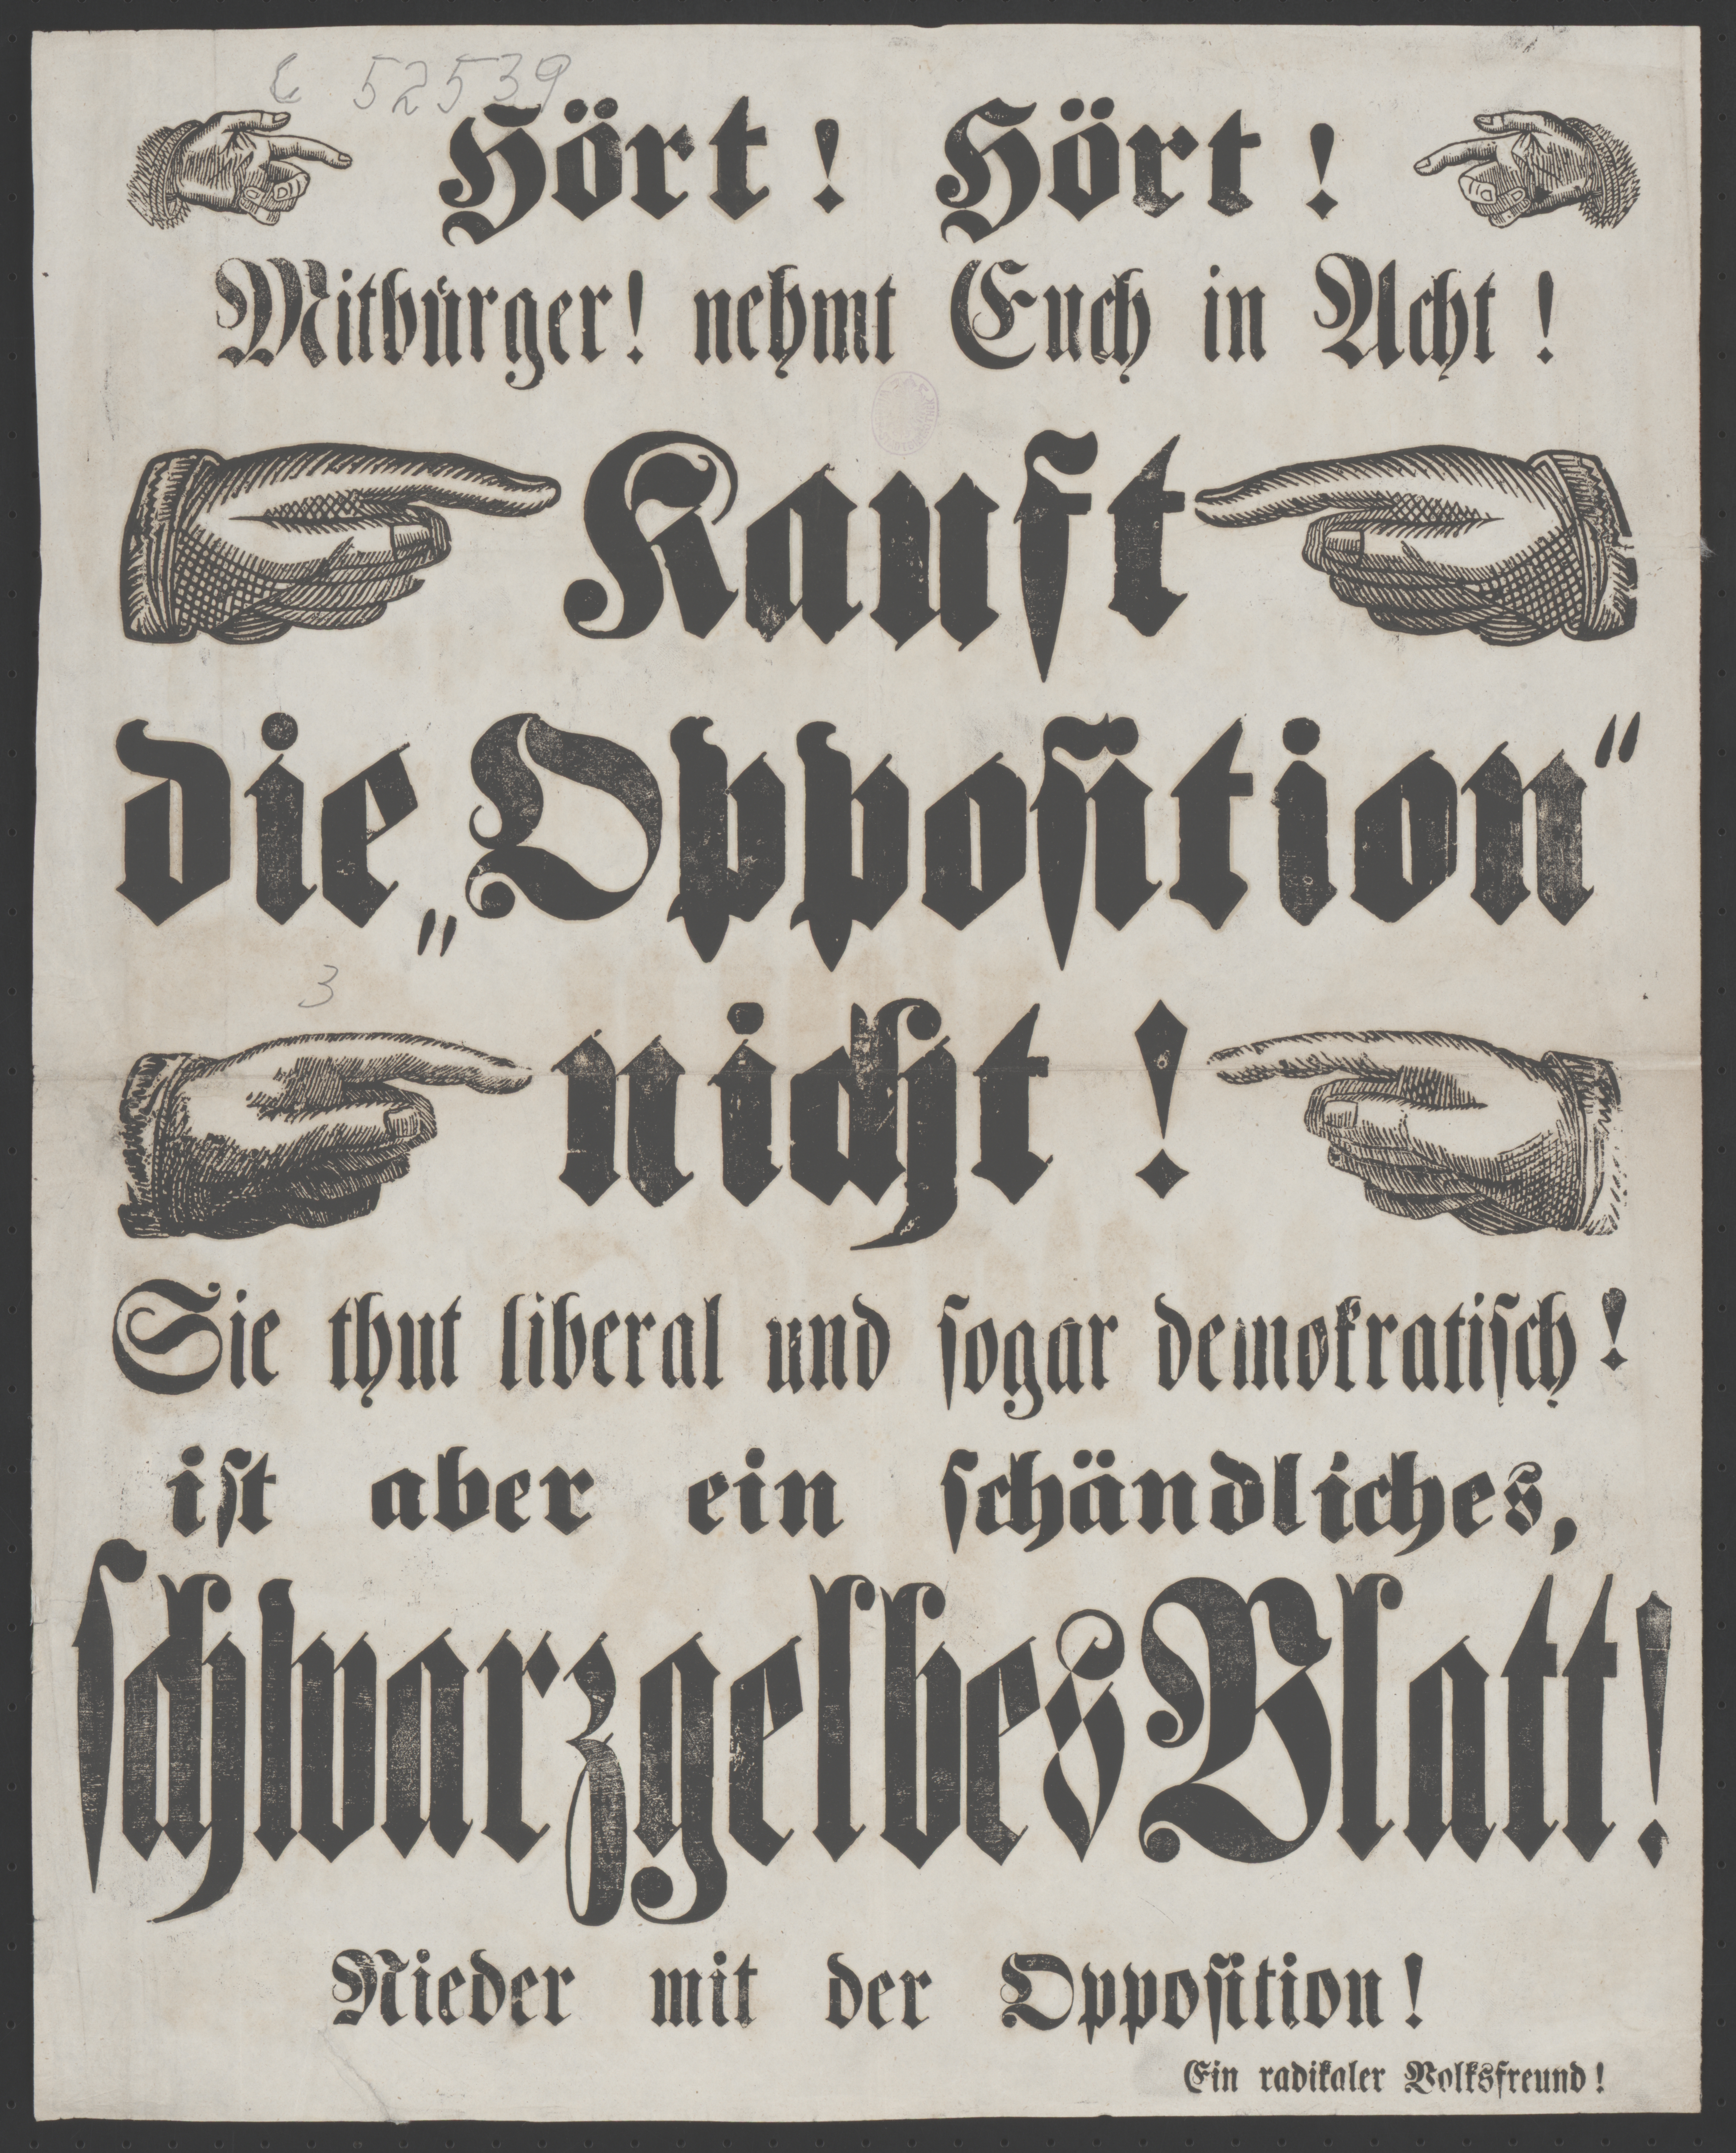 C 52539
Hört! Hört!
Mitbürger! nehmt Euch in Acht!
Kauft
die „Opposition“
3
nicht!
Sie thut liberal und sogar demokratisch!
ist aber ein schändliches,
schwarzgelbes Blatt!
Nieder mit der Opposition!
Ein radikaler Volksfreund!